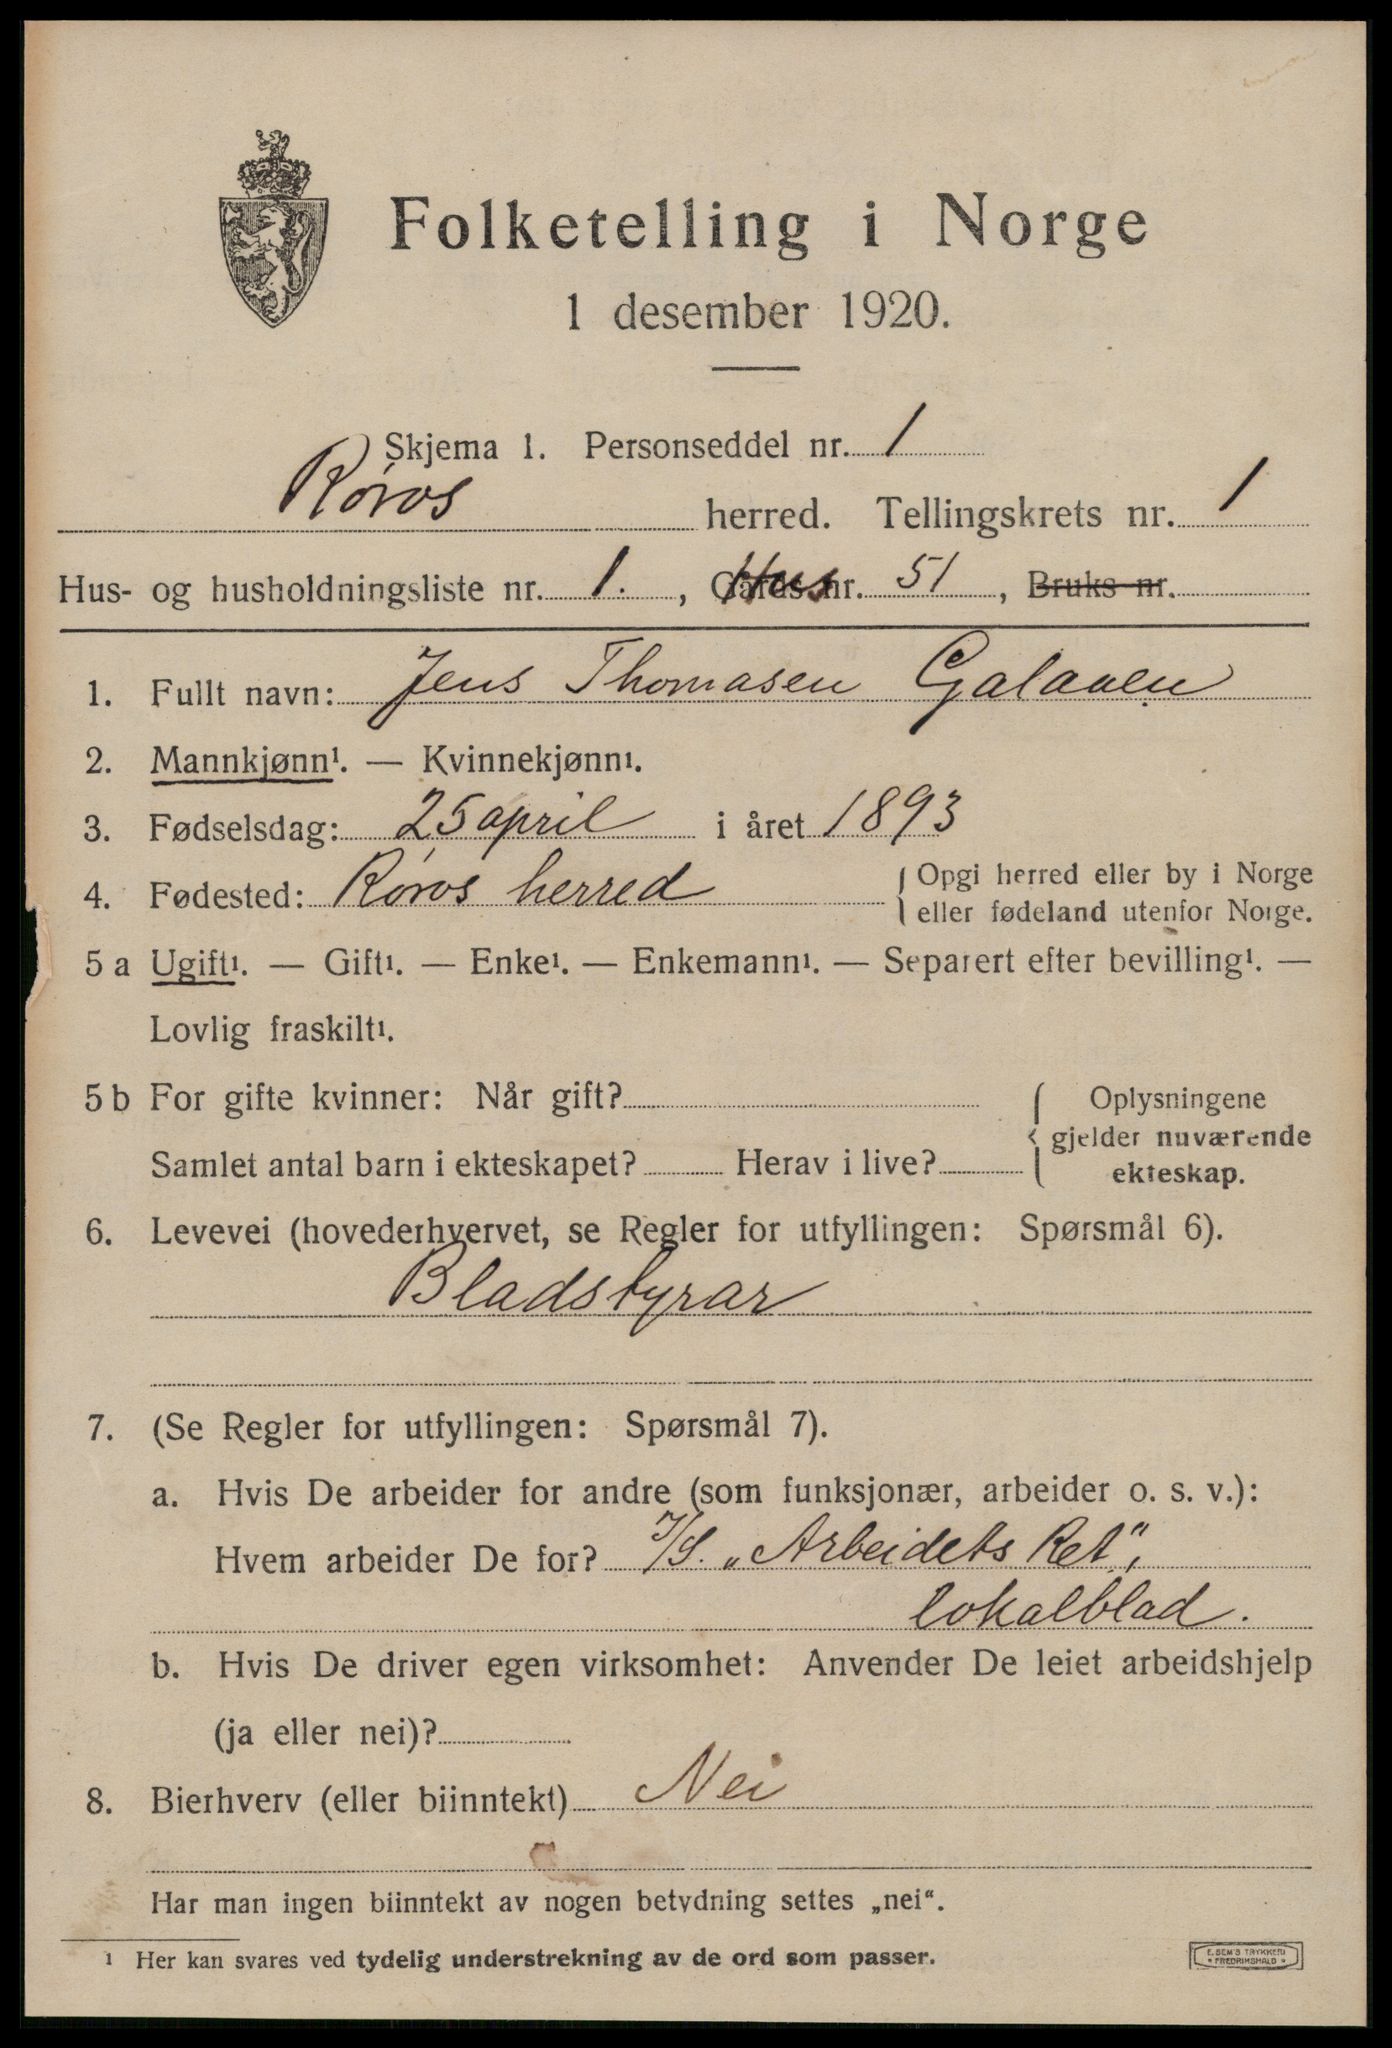 Folketelling i Norge
1 desember 1920.
Skjema 1. Personseddel nr. 1
Røros herred. Tellingskrets nr. 1
Hus- og husholdningsliste nr. 1. , Hus nr. 51 , Bruks-nr.
1. Fullt navn: Jens Thomasen Galaaen
2. Mannkjønn¹. — Kvinnekjønn¹.
3. Fødselsdag: 25 april i året 1893
4. Fødested: Røros herred { Opgi herred eller by i Norge
eller fødeland utenfor Norge.
5 a Ugift¹. — Gift¹. — Enke¹. — Enkemann¹. — Separert efter bevilling¹. —
Lovlig fraskilt¹.
5 b For gifte kvinner: Når gift? { Oplysningene
gjelder nuværende
Samlet antal barn i ekteskapet? Herav i live? ekteskap.
6. Levevei (hovederhvervet, se Regler for utfyllingen: Spørsmål 6).
Bladstyrar
7. (Se Regler for utfyllingen: Spørsmål 7).
a. Hvis De arbeider for andre (som funksjonær, arbeider o. s. v.):
Hvem arbeider De for? I/S. „Arbeidets Ret",
lokalblad.
b. Hvis De driver egen virksomhet: Anvender De leiet arbeidshjelp
(ja eller nei)?
8. Bierhverv (eller biinntekt) Nei
Har man ingen biinntekt av nogen betydning settes „nei“.
¹ Her kan svares ved tydelig understrekning av de ord som passer.
E. SEM'S TRYKKERI
* FREDRIKSHALD *